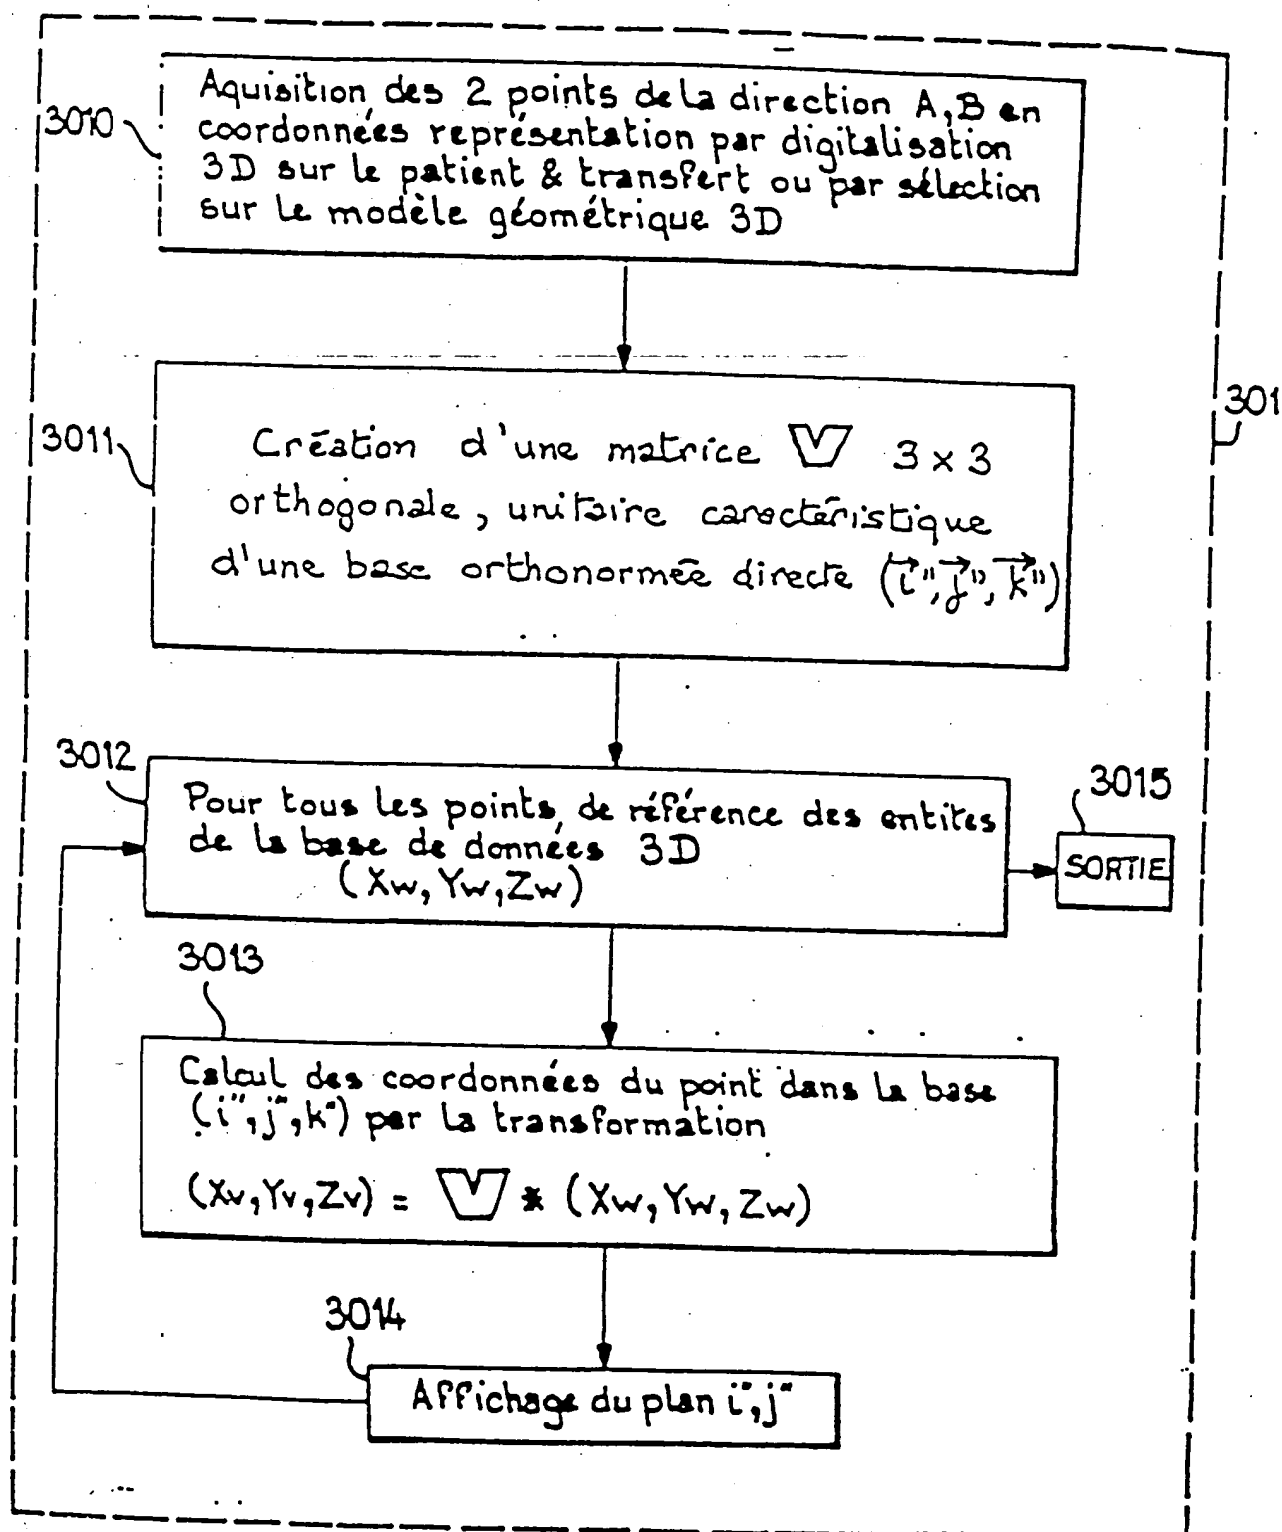 3010
Aquisition des 2 points de la direction A,B en
coordonnées représentation par digitalisation
3D sur le patient & transfert ou par sélection
sur le modèle géométrique 3D
301
3011
Création d'une matrice V 3 x 3
orthogonale, unitaire caractéristique
d'une base orthonormée directe (i⃗", j⃗", k⃗")
3012
Pour tous les points de référence des entites
de la base de données 3D
(Xw, Yw, Zw)
3015
SORTIE
3013
Calcul des coordonnées du point dans la base
(i", j", k") par la transformation
(Xv, Yv, Zv) = V * (Xw, Yw, Zw)
3014
Affichage du plan i", j"